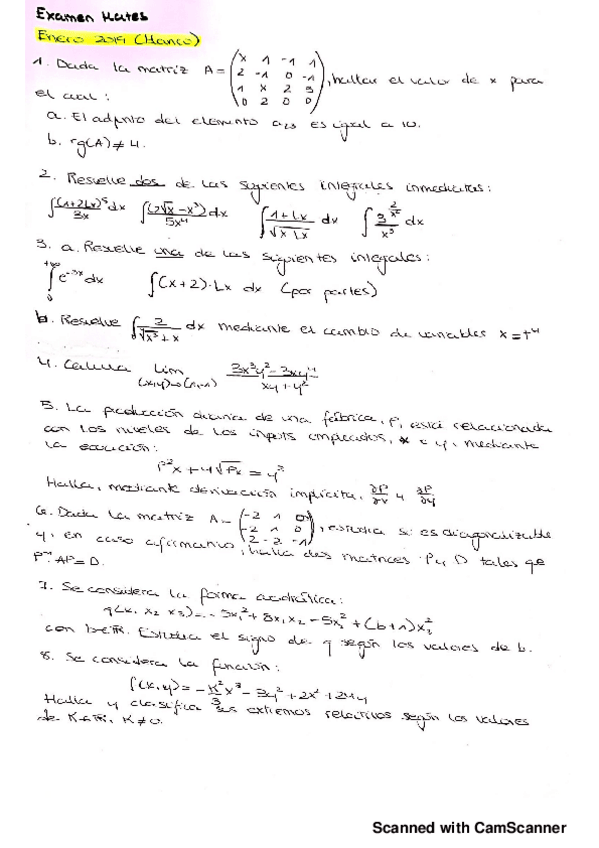 Examen Mates
Enero 2019 (Hance)
1. Dada la matriz A = (x 1 -1 1 / 2 -1 0 -1 / 1 x 2 3 / 0 2 0 0), hallar el valor de x para
el cual:
a. El adjunto del elemento a23 es igual a 10.
b. rg(A) ≠ 4.
2. Resuelve dos de las siguientes integrales inmediatas:
∫(1+2Lx)^5/3x dx ∫(2√x - x³)/5x⁴ dx ∫(1+Lx)/√(x Lx) dx ∫3^(2/x²)/x³ dx
3. a. Resuelve una de las siguientes integrales:
∫₀^+∞ e^-3x dx ∫(x+2)·Lx dx (por partes)
b. Resuelve ∫2/(√x³+x) dx mediante el cambio de variables x = t⁴
4. Calcula lim (x,y)→(1,-1) (3x³y² - 3xy⁴)/(xy + y²)
5. La producción diaria de una fábrica, P, está relacionada
con los niveles de los inputs empleados, x e y, mediante
la ecuación:
P²x + 4√Px = y³
Halla, mediante derivación implícita, ∂P/∂x y ∂P/∂y
6. Dada la matriz A = (-2 1 0 / -2 1 0 / 2 -2 -1), estudia si es diagonalizable
y, en caso afirmativo, halla dos matrices P y D tales que
P⁻¹AP = D.
7. Se considera la forma cuadrática:
q(x1 x2 x3) = -5x₁² + 8x₁x₂ - 5x₂² + (b+1)x₃²
con b∈ℝ. Estudia el signo de q según los valores de b.
8. Se considera la función:
f(x,y) = -K²/3 x³ - 3y² + 2x² + 24y
Halla y clasifica sus extremos relativos según los valores
de K∈ℝ, K≠0.
Scanned with CamScanner